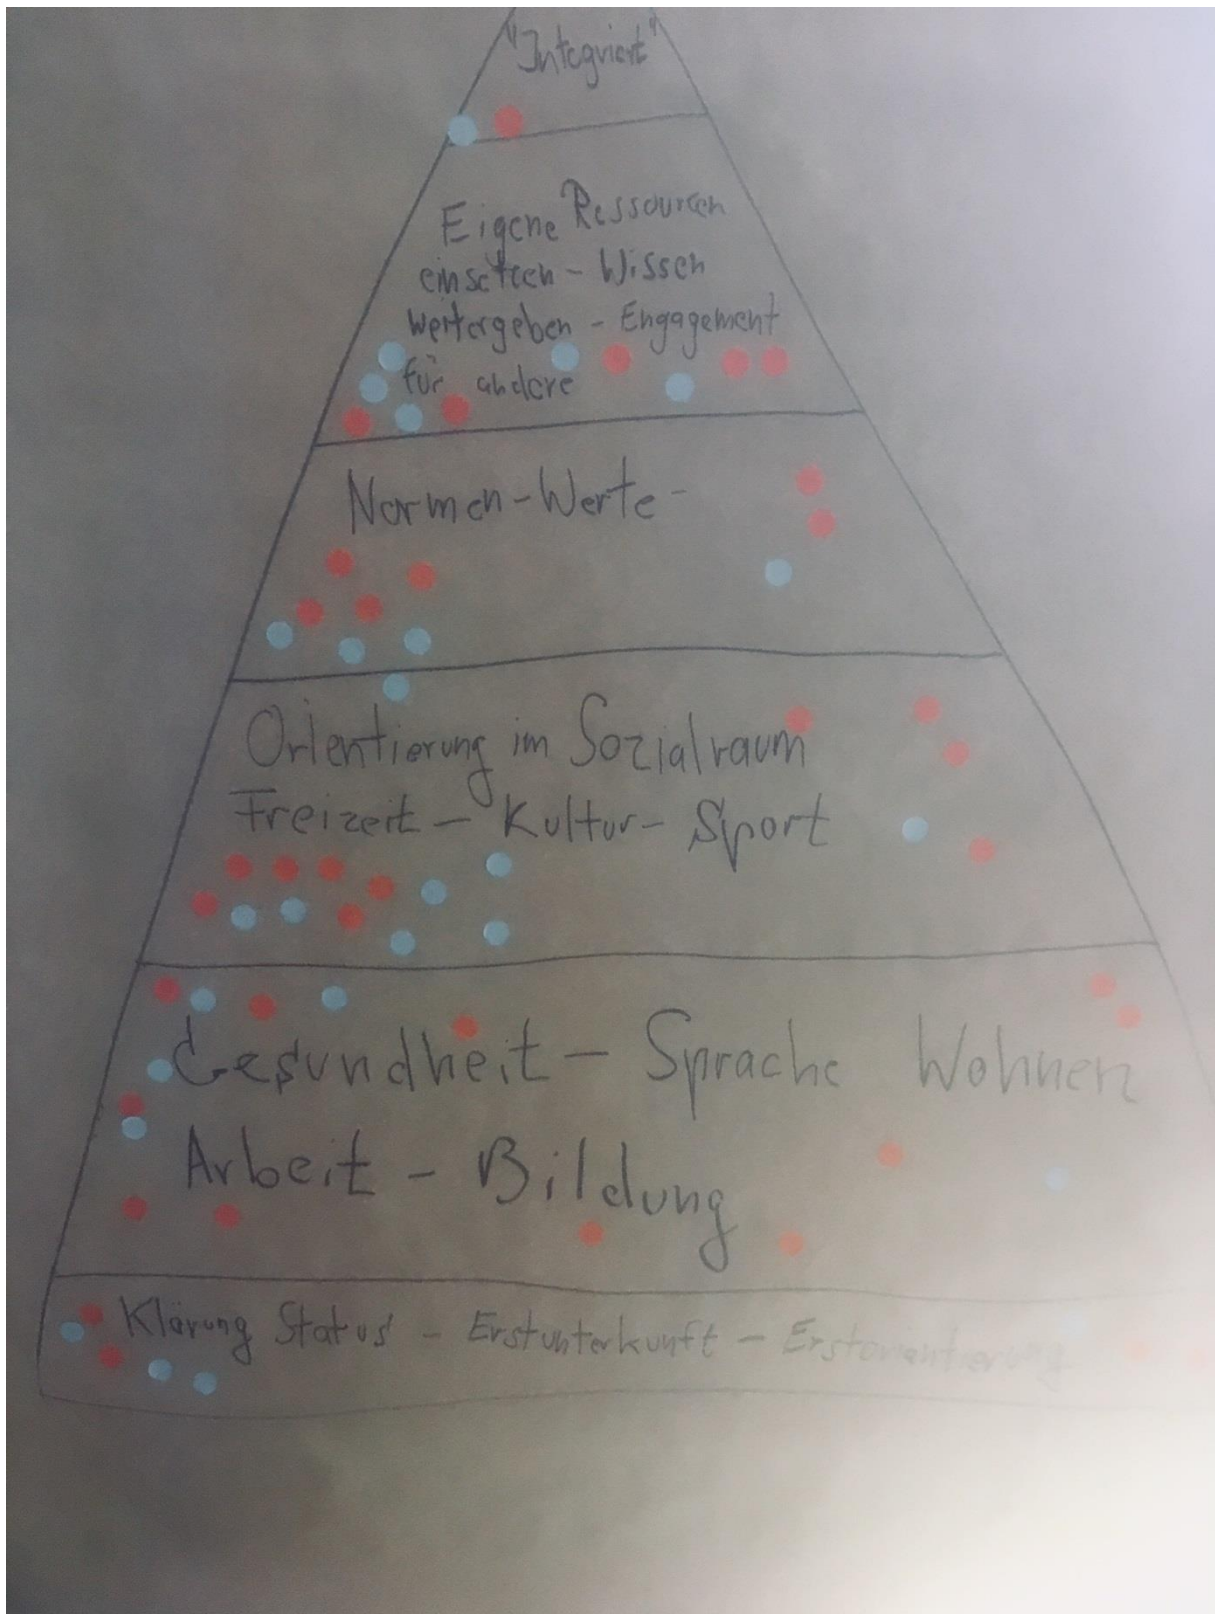 "Integriert"
Eigene Ressourcen
einsetzen - Wissen
weitergeben - Engagement
für andere
Normen - Werte -
Orientierung im Sozialraum
Freizeit - Kultur - Sport
Gesundheit - Sprache Wohnen
Arbeit - Bildung
Klärung Status - Erstunterkunft - Erstorientierung